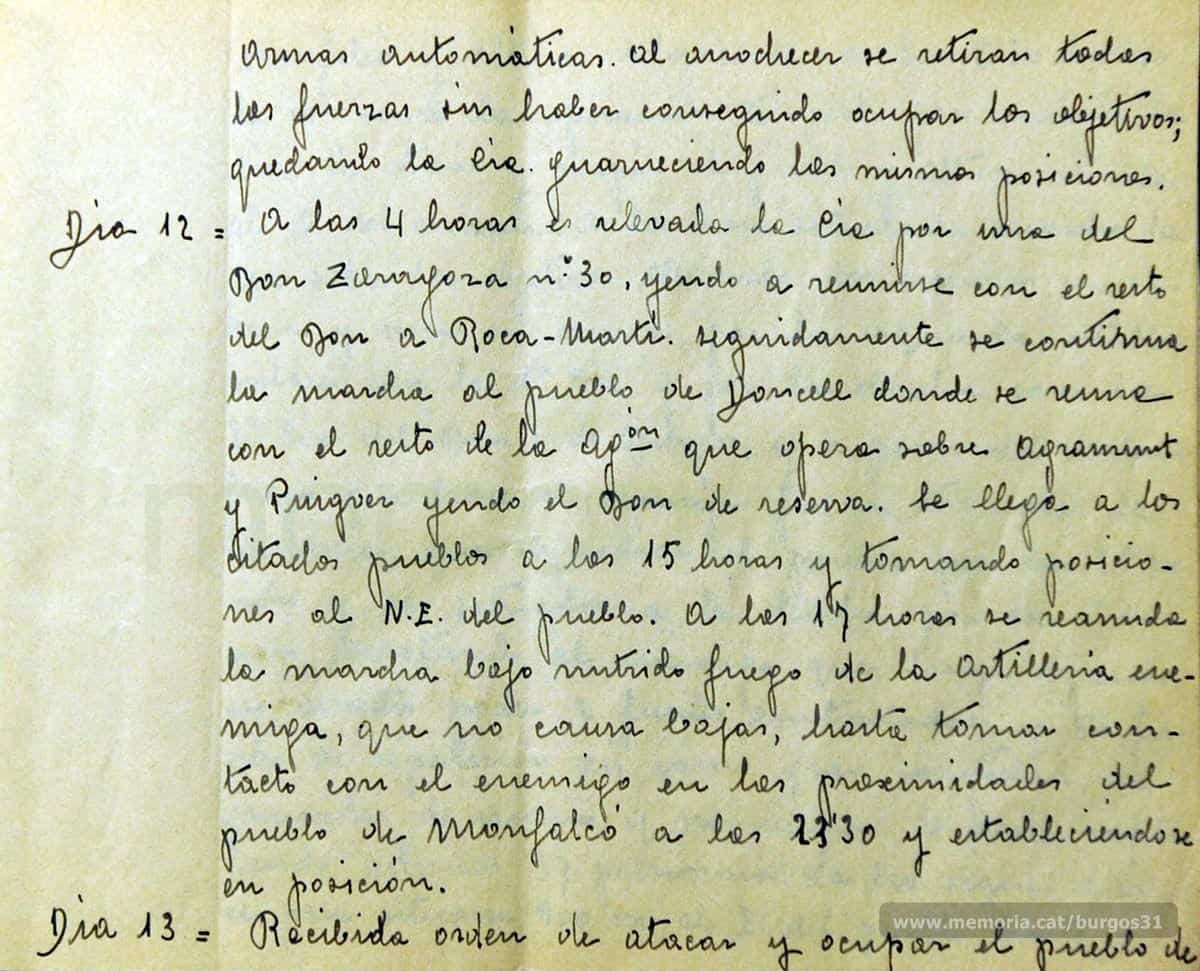 Armas automáticas. Al anochecer se retiran todas
las fuerzas sin haber conseguido ocupar los objetivos;
quedando la Cia. guarneciendo las mismas posiciones.
Dia 12 = A las 4 horas es relevada la Cia por una del
Bon Zaragoza nº 30, yendo a reunirse con el resto
del Bon a Roca-Martí. Seguidamente se continua
la marcha al pueblo de Doncell donde se reune
con el resto de la Agón que opera sobre Agramunt
y Puigver yendo el Bon de reserva. Se llega a los
citados pueblos a las 15 horas y tomando posicio-
nes al N.E. del pueblo. A las 17 horas se reanuda
la marcha bajo nutrido fuego de la Artilleria ene-
miga, que no causa bajas, hasta tomar con-
tacto con el enemigo en las proximidades del
pueblo de Monfalcó a las 23'30 y estableciendose
en posición.
Dia 13 = Recibida orden de atacar y ocupar el pueblo de
www.memoria.cat/burgos31